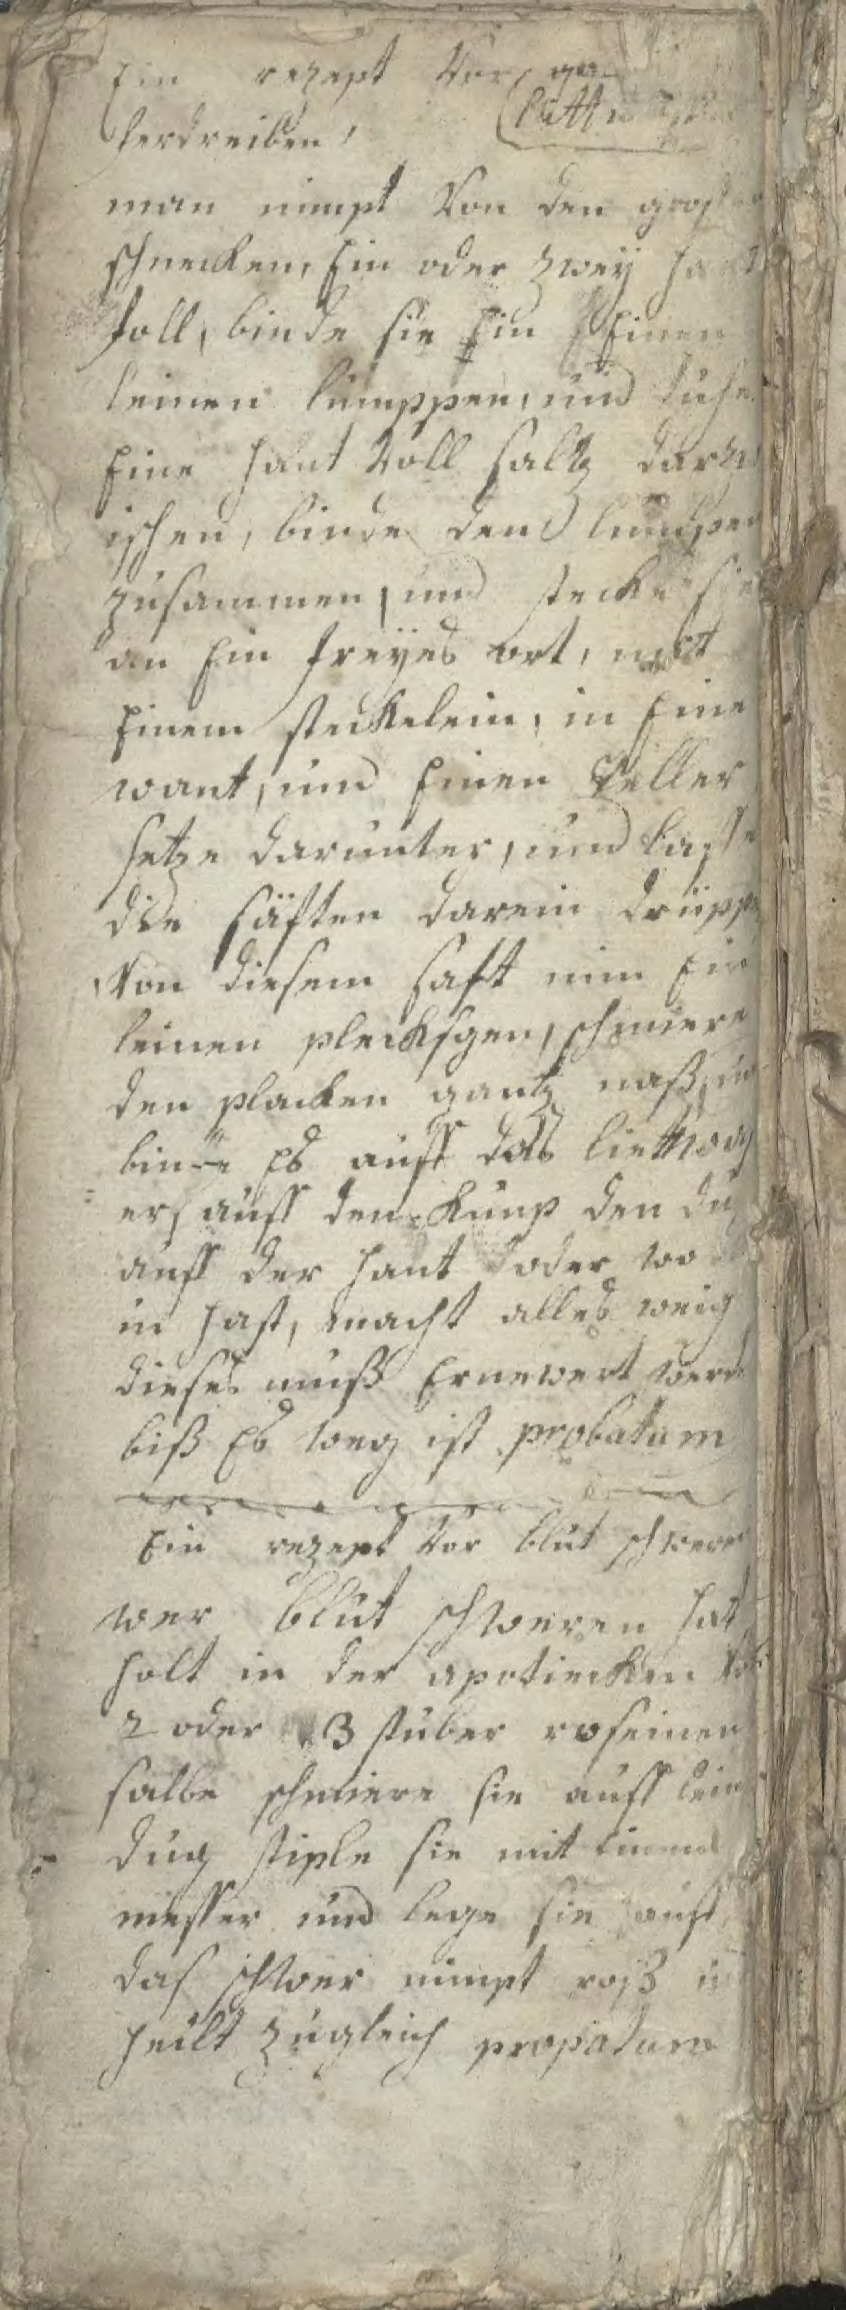 Ein rezept Vor
ferdreiben,
man nimpt Von den grossen
schnecken, Ein oder zweÿ hant
foll, binde sie Ein Einen
leinen lumppen, und tuhe
Eine hant Voll saltz darzw
ischen, binde den lumpen
zusammen, und stecke sie
an Ein freÿes ort, mit
Einem steckelein, in Eine
want, und Einen Teller
setze darunter, und lasse
die säften darein drüppe
Von diesem saft nim Ein
leinen plecksgen, schmiere
den placken gantz naß, un
binde Es auff das liettwag
er, auff den Kump den du
auff der hant oder wo
in hast, macht alles weig
dieses muß Ernewert werde
biß Es weg ist probatum
Ein rezept Vor blut schweren
wer blut schweren hat
holt in der apotiecken Vor
2 oder 3 stuber roseinen
salbe schmiere sie auff lein
dug stiple sie mit einem
messer und lege sie auf
das schwer nimpt roß un
heilt zugleich propatum